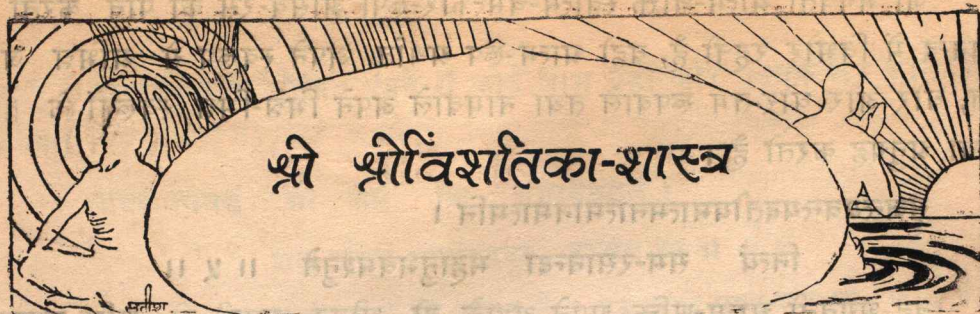 श्री श्रीविंशतिका-शास्त्र
सतीश